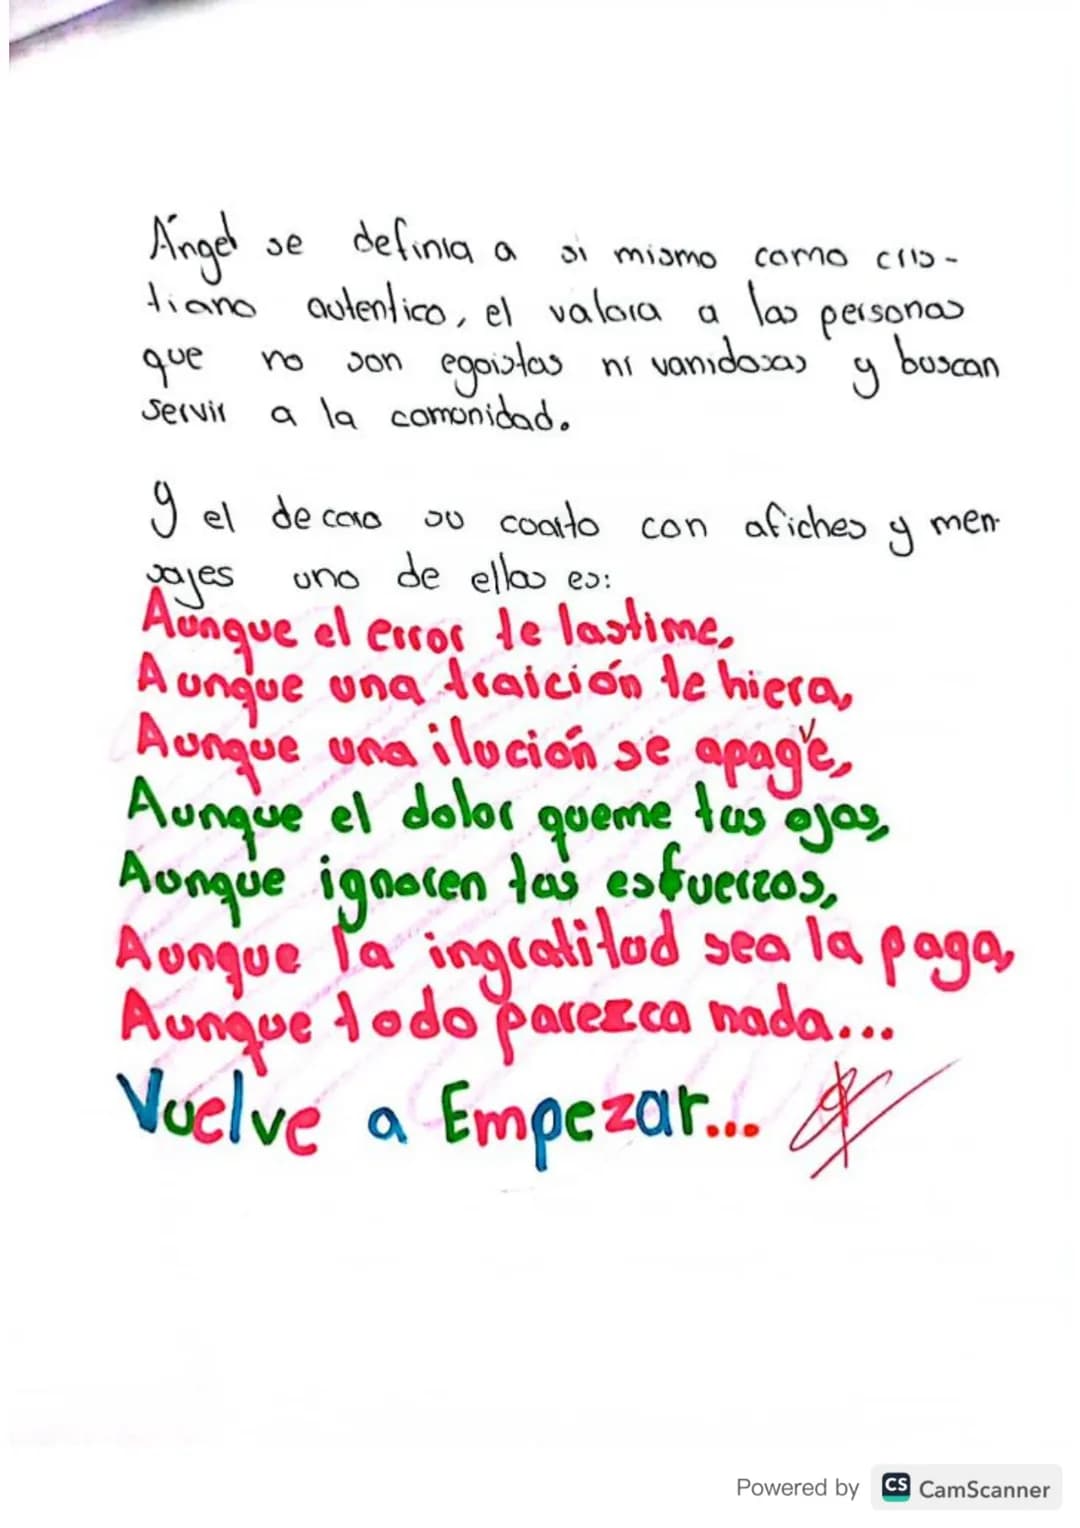 Ángel se definia a si mismo como cris-
tiano autentico, el valora a las personas
que no son egoistas ni vanidosas y buscan
servir a la comunidad.
y el decora su cuarto con afiches y men-
sajes uno de ellos es:
Aunque el error te lastime,
Aunque una traición te hiera,
Aunque una ilución se apague,
Aunque el dolor queme tus ojos,
Aunque ignoren tus esfuerzos,
Aunque la ingratitud sea la paga,
Aunque todo parezca nada...
Vuelve a Empezar...
Powered by CS CamScanner